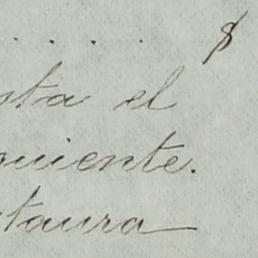 . . . . . $
sta el
quiente.
taura